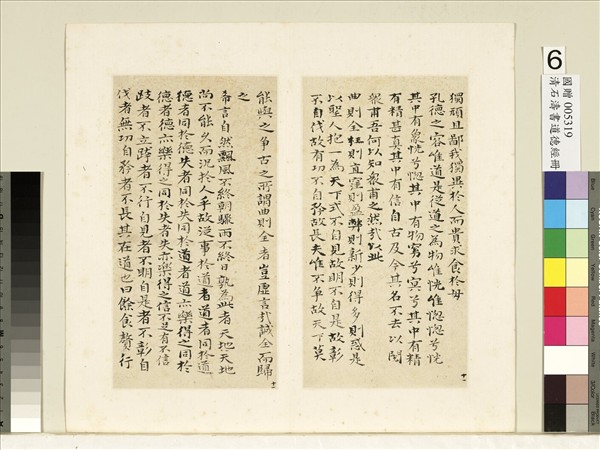 獨頑且鄙我獨異於人而貴求食於母
孔德之容惟道是從道之為物惟恍惟惚惚兮恍
其中有象恍兮惚其中有物窈兮冥兮其中有精
有精甚真其中有信自古及今其名不去以閱
衆甫吾何以知衆甫之然哉以此
曲則全枉則直窪則盈弊則新少則得多則惑是
以聖人抱一為天下式不自見故明不自是故彰
不自伐故有功不自矜故長夫惟不爭故天下莫
十一
能與之爭古之所謂曲則全者豈虛言哉誠全而歸
之
希言自然飄風不終朝驟雨不終日孰為此者天地天地
尚不能久而況於人乎故從事於道者道者同於道
德者同於德失者同於失同於道者道亦樂得之同於
德者德亦樂得之同於失者失亦樂得之信不足有不信
跂者不立跨者不行自見者不明自是者不彰自
伐者無功自矜者不長其在道也曰餘食贅行
十二
6
國贈 005319
清石濤書道德經冊
Blue
Cyan
Green
Yellow
Red
Magenta
White
3/Color
Black